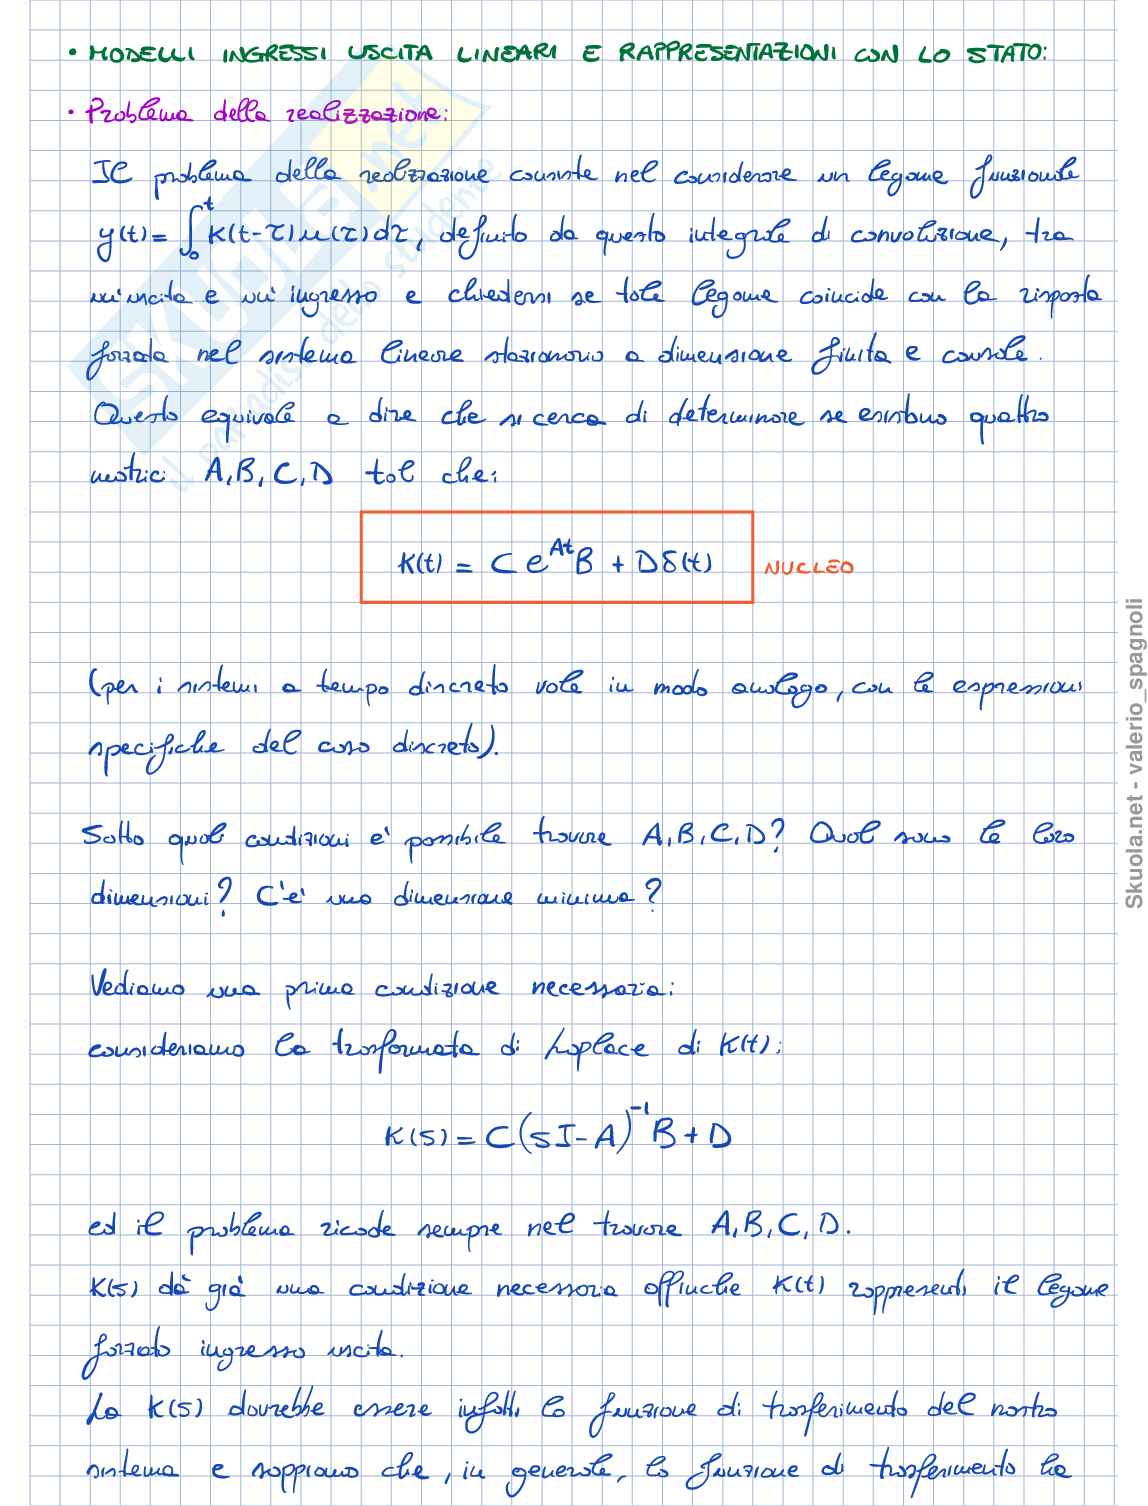 • MODELLI INGRESSI USCITA LINEARI E RAPPRESENTAZIONI CON LO STATO:
• Problema della realizzazione:
Il problema della realizzazione consiste nel considerare un legame funzionale
y(t)= ∫₀ᵗ K(t-τ)u(τ)dτ, definito da questo integrale di convoluzione, tra
un'uscita e un'ingresso e chiedersi se tale legame coincide con la risposta
forzata nel sistema lineare stazionario a dimensione finita e causale.
Questo equivale a dire che si cerca di determinare se esistono quattro
matrici A,B,C,D tal che:
K(t) = C e^{At} B + Dδ(t) NUCLEO
(per i sistemi a tempo discreto vale in modo analogo, con le espressioni
specifiche del caso discreto).
Sotto quali condizioni e' possibile trovare A,B,C,D? Qual sono le loro
dimensioni? C'e' una dimensione minima?
Vediamo una prima condizione necessaria:
consideriamo la trasformata di Laplace di K(t):
K(s) = C(sI-A)⁻¹B+D
ed il problema ricade sempre nel trovare A,B,C,D.
K(s) dà già una condizione necessaria affinche K(t) rappresenti il legame
forzato ingresso uscita.
La K(s) dovrebbe essere infatti la funzione di trasferimento del nostro
sistema e sappiamo che, in generale, la funzione di trasferimento ha
Skuola.net - valerio_spagnoli
SKUOLA.net
il paradiso dello studente